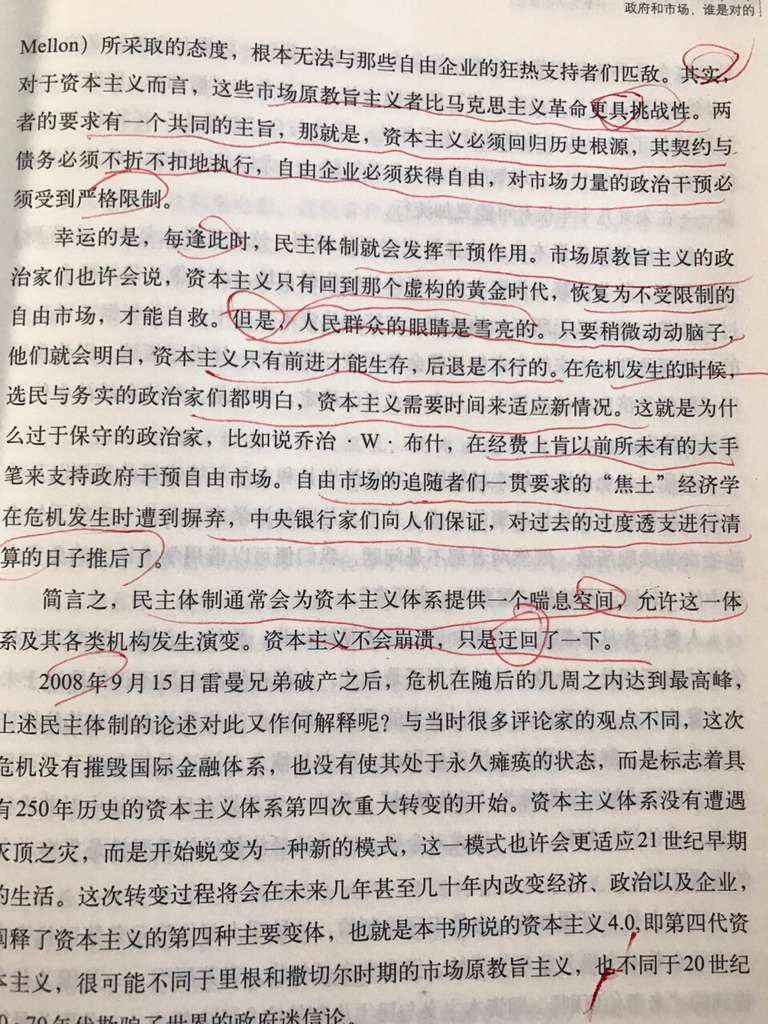 政府和市场，谁是对的
Mellon）所采取的态度，根本无法与那些自由企业的狂热支持者们匹敌。其实，
对于资本主义而言，这些市场原教旨主义者比马克思主义革命更具挑战性。两
者的要求有一个共同的主旨，那就是，资本主义必须回归历史根源，其契约与
债务必须不折不扣地执行，自由企业必须获得自由，对市场力量的政治干预必
须受到严格限制。
幸运的是，每逢此时，民主体制就会发挥干预作用。市场原教旨主义的政
治家们也许会说，资本主义只有回到那个虚构的黄金时代，恢复为不受限制的
自由市场，才能自救。但是，人民群众的眼睛是雪亮的。只要稍微动动脑子，
他们就会明白，资本主义只有前进才能生存，后退是不行的。在危机发生的时候，
选民与务实的政治家们都明白，资本主义需要时间来适应新情况。这就是为什
么过于保守的政治家，比如说乔治·W·布什，在经费上肯以前所未有的大手
笔来支持政府干预自由市场。自由市场的追随者们一贯要求的“焦土”经济学
在危机发生时遭到摒弃，中央银行家们向人们保证，对过去的过度透支进行清
算的日子推后了。
简言之，民主体制通常会为资本主义体系提供一个喘息空间，允许这一体
系及其各类机构发生演变。资本主义不会崩溃，只是迂回了一下。
2008年9月15日雷曼兄弟破产之后，危机在随后的几周之内达到最高峰，
上述民主体制的论述对此又作何解释呢？与当时很多评论家的观点不同，这次
危机没有摧毁国际金融体系，也没有使其处于永久瘫痪的状态，而是标志着具
有250年历史的资本主义体系第四次重大转变的开始。资本主义体系没有遭遇
灭顶之灾，而是开始蜕变为一种新的模式，这一模式也许会更适应21世纪早期
的生活。这次转变过程将会在未来几年甚至几十年内改变经济、政治以及企业，
阐释了资本主义的第四种主要变体，也就是本书所说的资本主义4.0,即第四代资
本主义，很可能不同于里根和撒切尔时期的市场原教旨主义，也不同于20世纪
70年代欺骗了世界的政府迷信论。